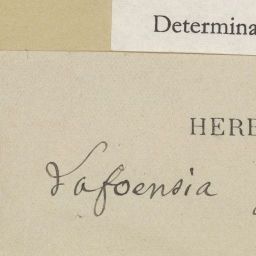 Determina
HERB
Lafoensia